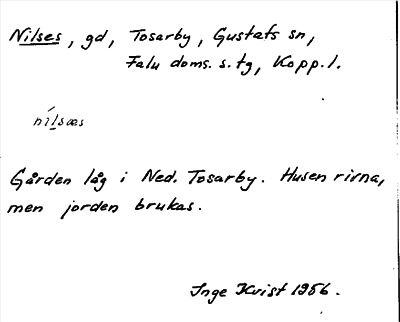 Nilses, gd, Tosarby, Gustafs sn,
Falu doms. s. tg, Kopp. l.
nílsæs
Gården låg i Ned. Tosarby. Husen rivna,
men jorden brukas.
Inge Kvist 1956.